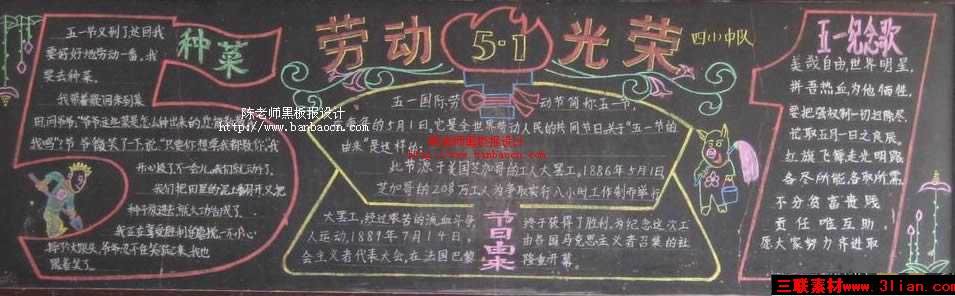 五一节又到了,这回我
要好好地劳动一番,我
要去种菜。
我带着疑问来到菜
我吗?"爷爷微笑了一下说,"只要你想学我都教你"我
我们把田里的泥土翻开又把
跟着笑了。
种菜
劳动 5·1 光荣
四(1)中队
陈老师黑板报设计
http://www.banbaocn.com
五一国际劳动节简称五一节,
年的5月1日,它是全世界劳动人民的共同节日,关于"五一节的
由来"是这样的
陈老师黑板报设计
此节源于美国芝加哥的工人大罢工,1886年5月1日
芝加哥的20多万工人为争取实行八小时工作制而举行
大罢工,经过艰苦的流血斗争,
人运动,1889年7月14日,
会主义者代表大会,在法国巴黎
节日由来
终于获得了胜利,为纪念这次工
由各国马克思主义者召集的社
隆重开幕。
五一纪念歌
美哉自由,世界明星,
拼吾热血,为他牺牲,
要把强权制一切扫除尽,
记取五月一日之良辰,
红旗飞舞,走光明路,
各尽所能,各取所需,
不分贫富贵贱
责任唯互助,
愿大家努力齐进取
三联素材www.3lian.com